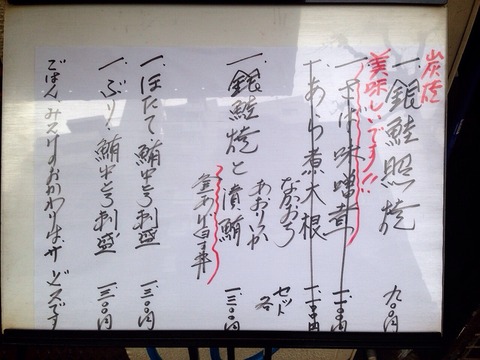 炭焼
一.銀鮭照焼 九〇〇円
美味しいです!!
一.さば味噌煮 一.一〇〇円
一.あら煮大根 一.一〇〇円
なかおち
あおりいか
セット
各
一.銀鮭焼と漬鮪 一.三〇〇円
釜あげ白す丼
一.ほたて 鮪中とろ刺盛 一.三〇〇円
一.ぶり.鮪中とろ刺盛 一.三〇〇円
ごはん、みそ汁のおかわりはサービスです